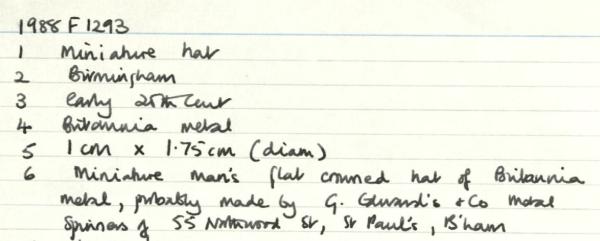 1988 F 1293
1 Miniature hat
2 Birmingham
3 Early 20th Cent
4 Britannia metal
5 1 cm x 1.75 cm (diam)
6 Miniature man's flat crowned hat of Britannia
metal, probably made by G. Edwards & Co metal
Spinners of 55 Northwood St, St Paul's, B'ham